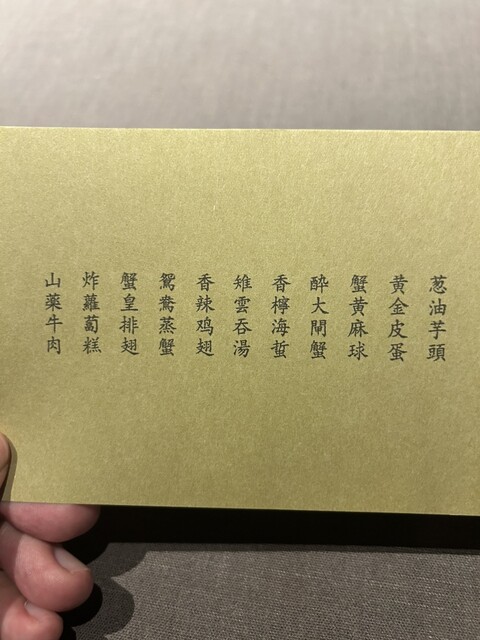 葱油芋頭
黄金皮蛋
蟹黄麻球
醉大閘蟹
香檸海蜇
雉雲吞湯
香辣鸡翅
鴛鴦蒸蟹
蟹皇排翅
炸蘿蔔糕
山藥牛肉